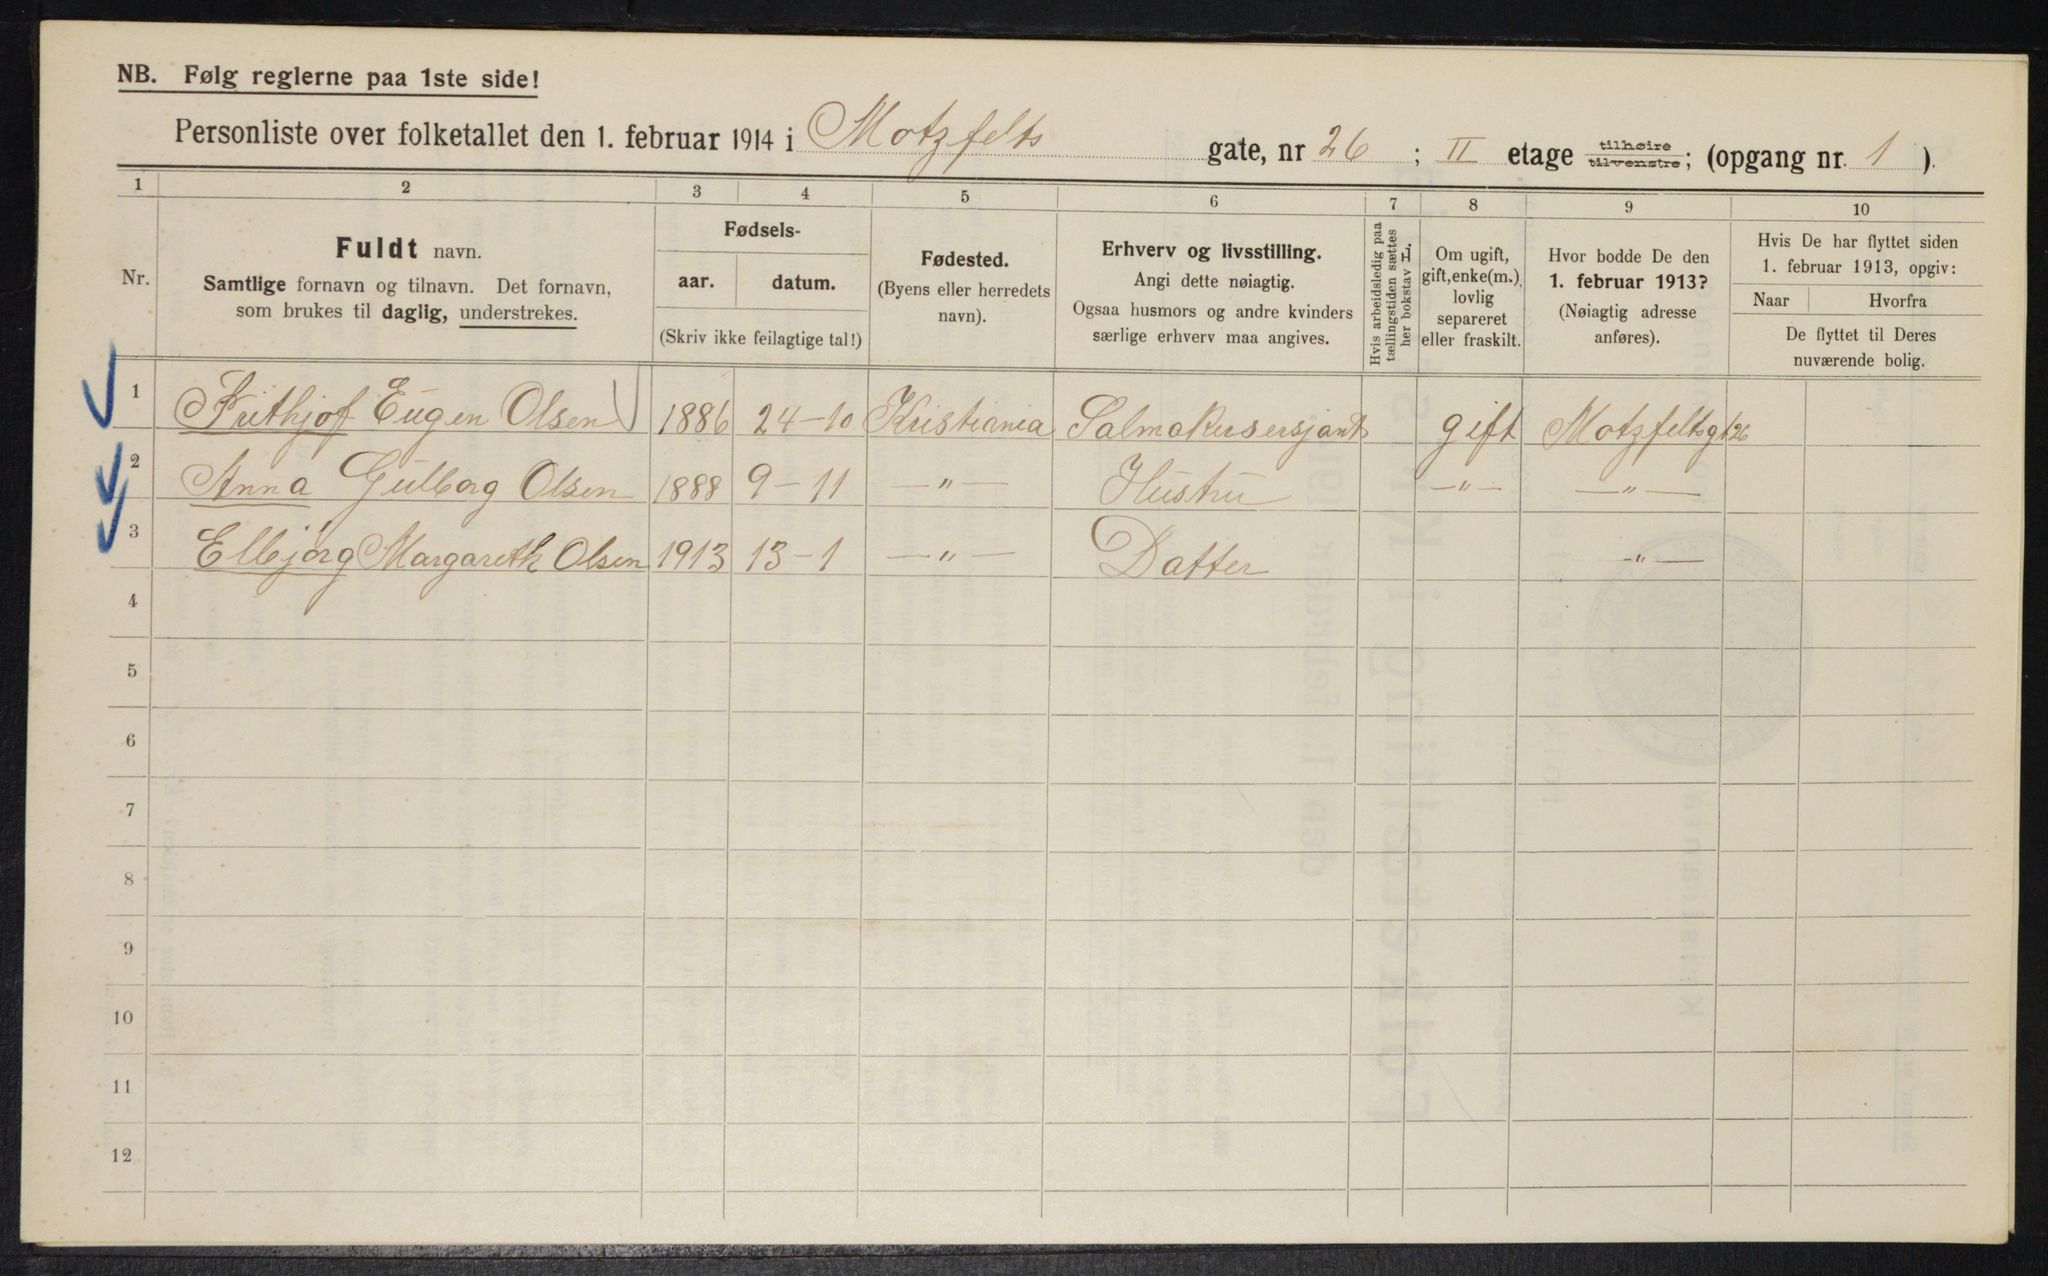 NB. Følg reglerne paa 1ste side!
Personliste over folketallet den 1. februar 1914 i Motzfelts gate, nr 26 ; II etage tilhøire tilvenstre; (opgang nr. 1 ).
1 2 3 4 5 6 7 8 9 10
Nr.
Fuldt navn.
Samtlige fornavn og tilnavn. Det fornavn,
som brukes til daglig, understrekes.
Fødsels-
aar. datum.
(Skriv ikke feilagtige tal!)
Fødested.
(Byens eller herredets
navn).
Erhverv og livsstilling.
Angi dette nøiagtig.
Ogsaa husmors og andre kvinders
særlige erhverv maa angives.
Hvis arbeidsledig paa
tællingstiden sættes
her bokstav L.
Om ugift,
gift, enke(m.),
lovlig
separeret
eller fraskilt.
Hvor bodde De den
1. februar 1913?
(Nøiagtig adresse
anføres).
Hvis De har flyttet siden
1. februar 1913, opgiv:
Naar Hvorfra
De flyttet til Deres
nuværende bolig.
1 Frithjof Eugen Olsen 1886 24-10 Kristiania Salmakersersjant gift Motzfeltsgt 26
2 Anna Gulborg Olsen 1888 9-11 —"— Hustru —"— —"—
3 Elbjørg Margareth Olsen 1913 13-1 —"— Datter —"—
4
5
6
7
8
9
10
11
12